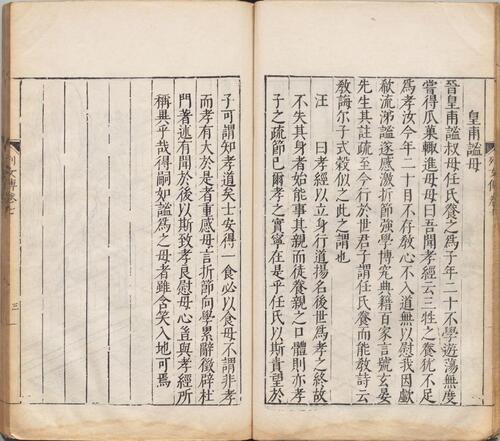 皇甫謐母
晉皇甫謐叔母任氏養之爲子年二十不學遊蕩無度
嘗得瓜菓輒進母母曰吾聞孝經云三牲之養犹不足
爲孝汝今年二十目不存敎心不入道無以慰我因歔
欷流涕謐遂感激折節強學博究典籍百家言號玄晏
先生其註疏至今行於世君子謂任氏養而能敎詩云
敎誨尔子式穀似之此之謂也
汪 曰孝經以立身行道揚名後世爲孝之終故
不失其身者始能事其親而徒養親之口體則亦孝
子之疏節已爾孝之實寧在是乎任氏以斯責望於
子可謂知孝道矣士安得一食必以食母不謂非孝
而孝有大於是者重感母言折節向學累辭徵辟杜
門著述有聞於後以斯致孝良慰母心豈與孝經所
稱異乎哉得嗣如謐爲之母者雖含笑入地可焉
列女傳卷七
三